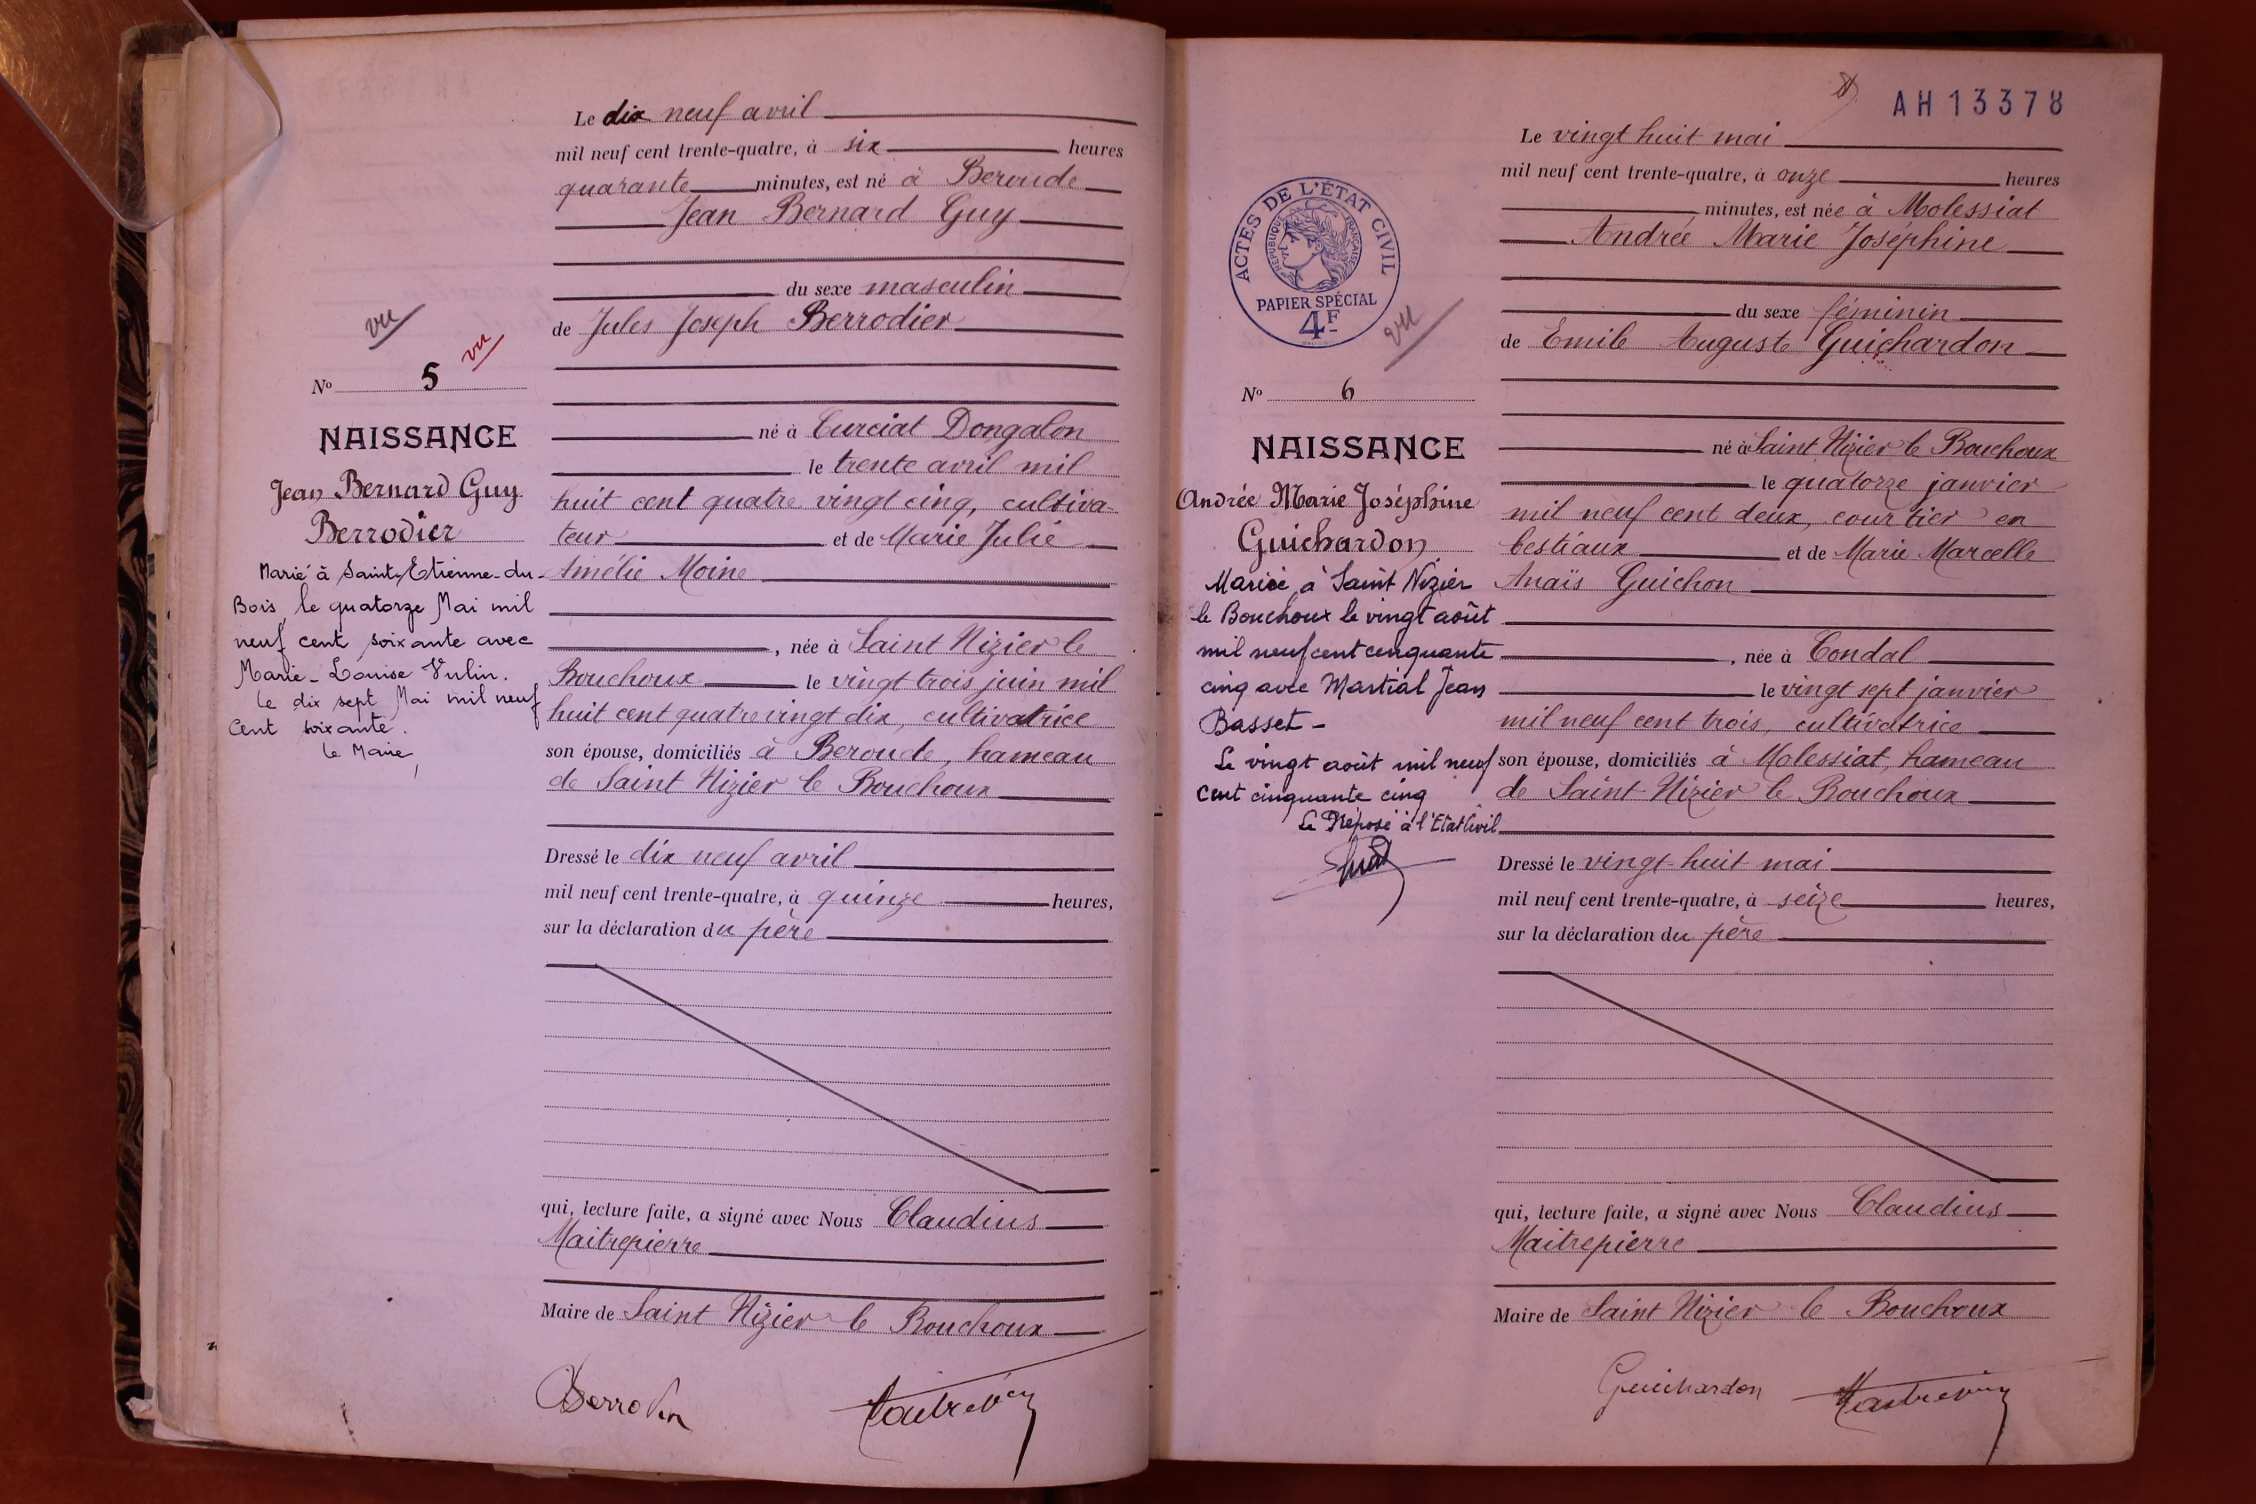 Le dix neuf avril
mil neuf cent trente-quatre, à six heures
quarante minutes, est né à Beroude
Jean Bernard Guy
du sexe masculin
de Jules Joseph Berrodier
né à Curciat Dongalon
le trente avril mil
huit cent quatre vingt cinq, cultiva-
teur et de Marie Julie
Amélie Moine
, née à Saint Nizier le
Bouchoux le vingt trois juin mil
huit cent quatre vingt dix, cultivatrice
son épouse, domiciliés à Beroude, hameau
de Saint Nizier le Bouchoux
Dressé le dix neuf avril
mil neuf cent trente-quatre, à quinze heures,
sur la déclaration du père
qui, lecture faite, a signé avec Nous Claudius
Maitrepierre
Maire de Saint Nizier le Bouchoux
vu
vu
No 5
NAISSANCE
Jean Bernard Guy
Berrodier
Marié à Saint-Etienne-du-
Bois, le quatorze Mai mil
neuf cent soixante avec
Marie-Louise Vulin.
Le dix sept Mai mil neuf
Cent soixante.
Le Maire,
AH 13378
Le vingt huit mai
mil neuf cent trente-quatre, à onze heures
minutes, est née à Molessiat
Andrée Marie Joséphine
du sexe féminin
de Emile Auguste Guichardon
né à Saint Nizier le Bouchoux
le quatorze janvier
mil neuf cent deux, courtier en
bestiaux et de Marie Marcelle
Anaïs Guichon
, née à Condal
le vingt sept janvier
mil neuf cent trois, cultivatrice
son épouse, domiciliés à Molessiat, hameau
de Saint-Nizier le Bouchoux
Dressé le vingt-huit mai
mil neuf cent trente-quatre, à seize heures,
sur la déclaration du père
qui, lecture faite, a signé avec Nous Claudius
Maitrepierre
Maire de Saint Nizier le Bouchoux
Guichardon
ACTES DE L'ÉTAT CIVIL
RÉPUBLIQUE FRANÇAISE
PAPIER SPÉCIAL
4F
vu
No 6
NAISSANCE
Andrée Marie Joséphine
Guichardon
Mariée à Saint Nizier
le Bouchoux le vingt août
mil neuf cent cinquante
cinq avec Martial Jean
Basset-
Le vingt août mil neuf
cent cinquante cinq
Le Préposé à l'Etat Civil